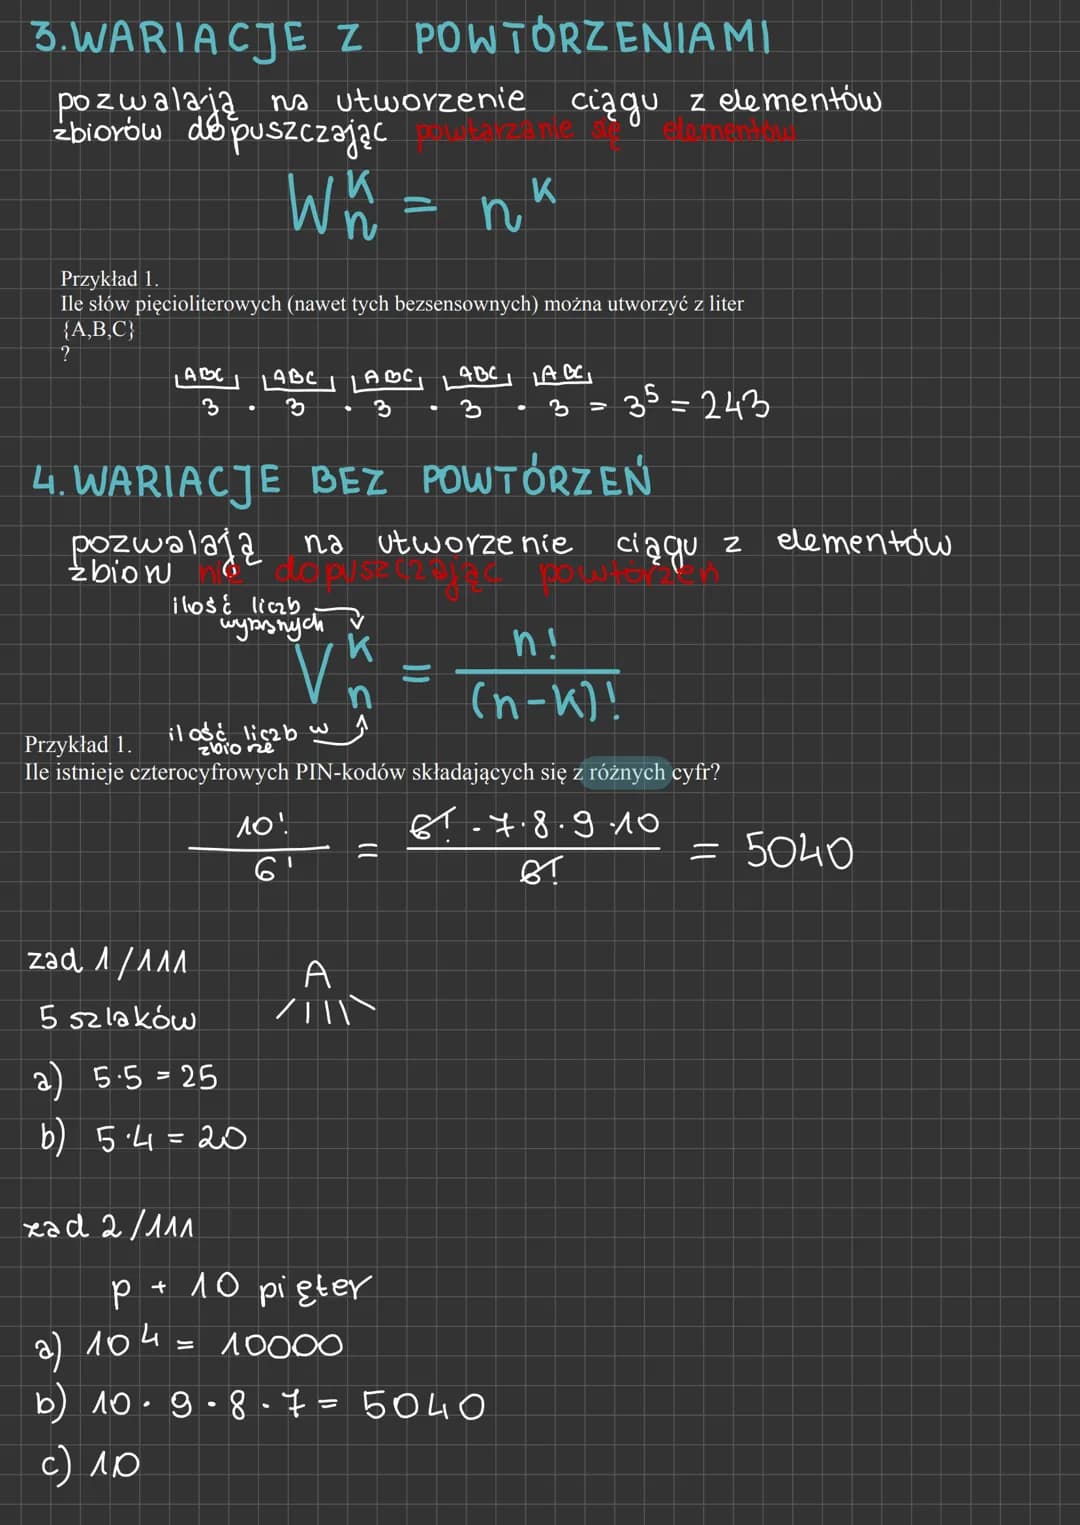 3.WARIACJE Z POWTÓRZENIAMI
pozwalają na utworzenie ciągu z elementów
zbiorów dopuszczając powtarzanie się elementów
W_n^k = n^k
Przykład 1.
Ile słów pięcioliterowych (nawet tych bezsensownych) można utworzyć z liter
{A,B,C}
?
ABC ABC ABC ABC ABC
3 · 3 · 3 · 3 · 3 = 3^5 = 243
4.WARIACJE BEZ POWTÓRZEŃ
pozwalają na utworzenie ciągu z elementów
zbioru nie dopuszczając powtórzeń
ilość liczb
V_n^k = n!/(n-k)!
ilość liczb w
zbiorze
Przykład 1.
Ile istnieje czterocyfrowych PIN-kodów składających się z różnych cyfr?
10!/6! = 6!·7·8·9·10/6! = 5040
zad 1/111
A
5 szlaków
a) 5·5 = 25
b) 5·4 = 20
zad 2/111
p + 10 pięter
a) 10^4 = 10000
b) 10·9·8·7 = 5040
c) 10